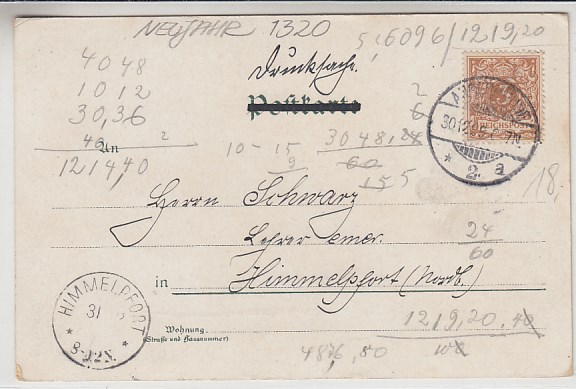 NEUJAHR 1320
5 : 6096 / 1219,20
4048
1012
30,36
40
1214,40
2
Drucksache.
Postkarte
An
2
6
10 - 15
9
3048,24
60
15 5
REICHSPOST
30.12.
7N.
* 2 a
18.
Herrn Schwarz
Lehrer emer.
24
60
in Himmelpfort (Nordb.)
HIMMELPFORT
31
8-12N.
* *
Wohnung.
(Straße und Hausnummer)
1219,20.40
4876,80 100